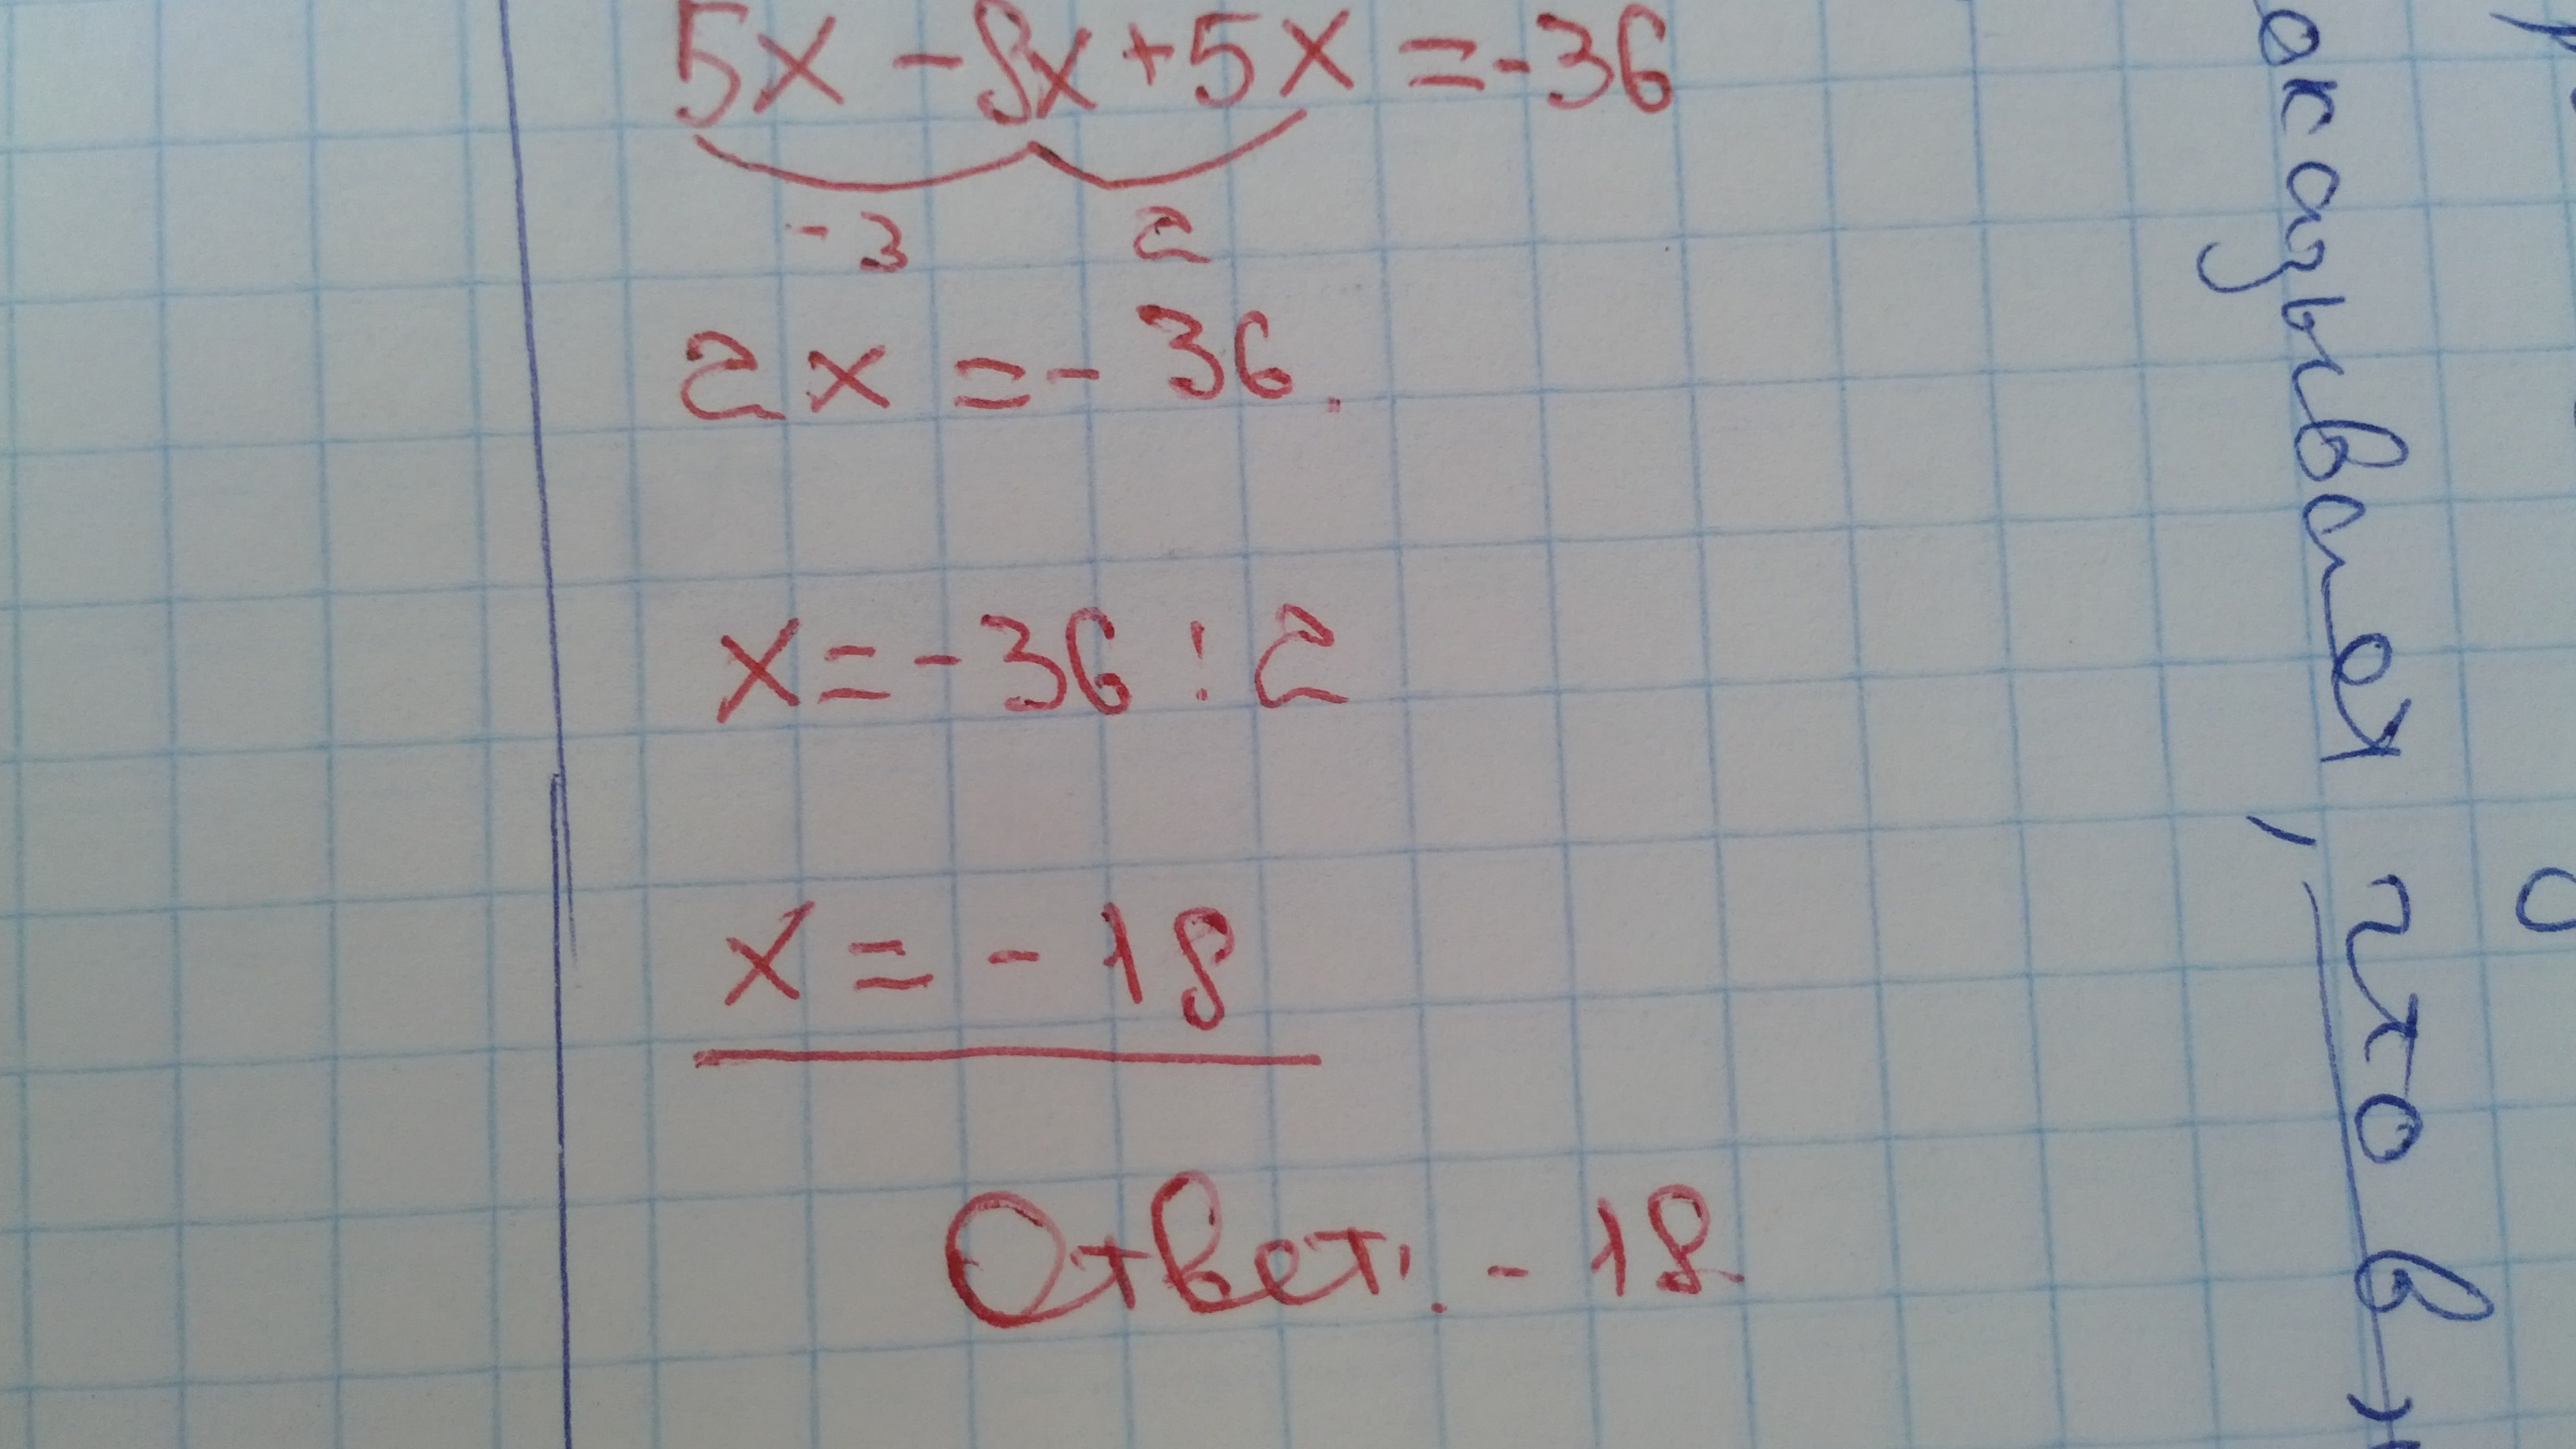 5x - 8x + 5x = -36
-3 2
2x = - 36.
x = - 36 : 2
x = - 18
Ответ: - 18.
, что в